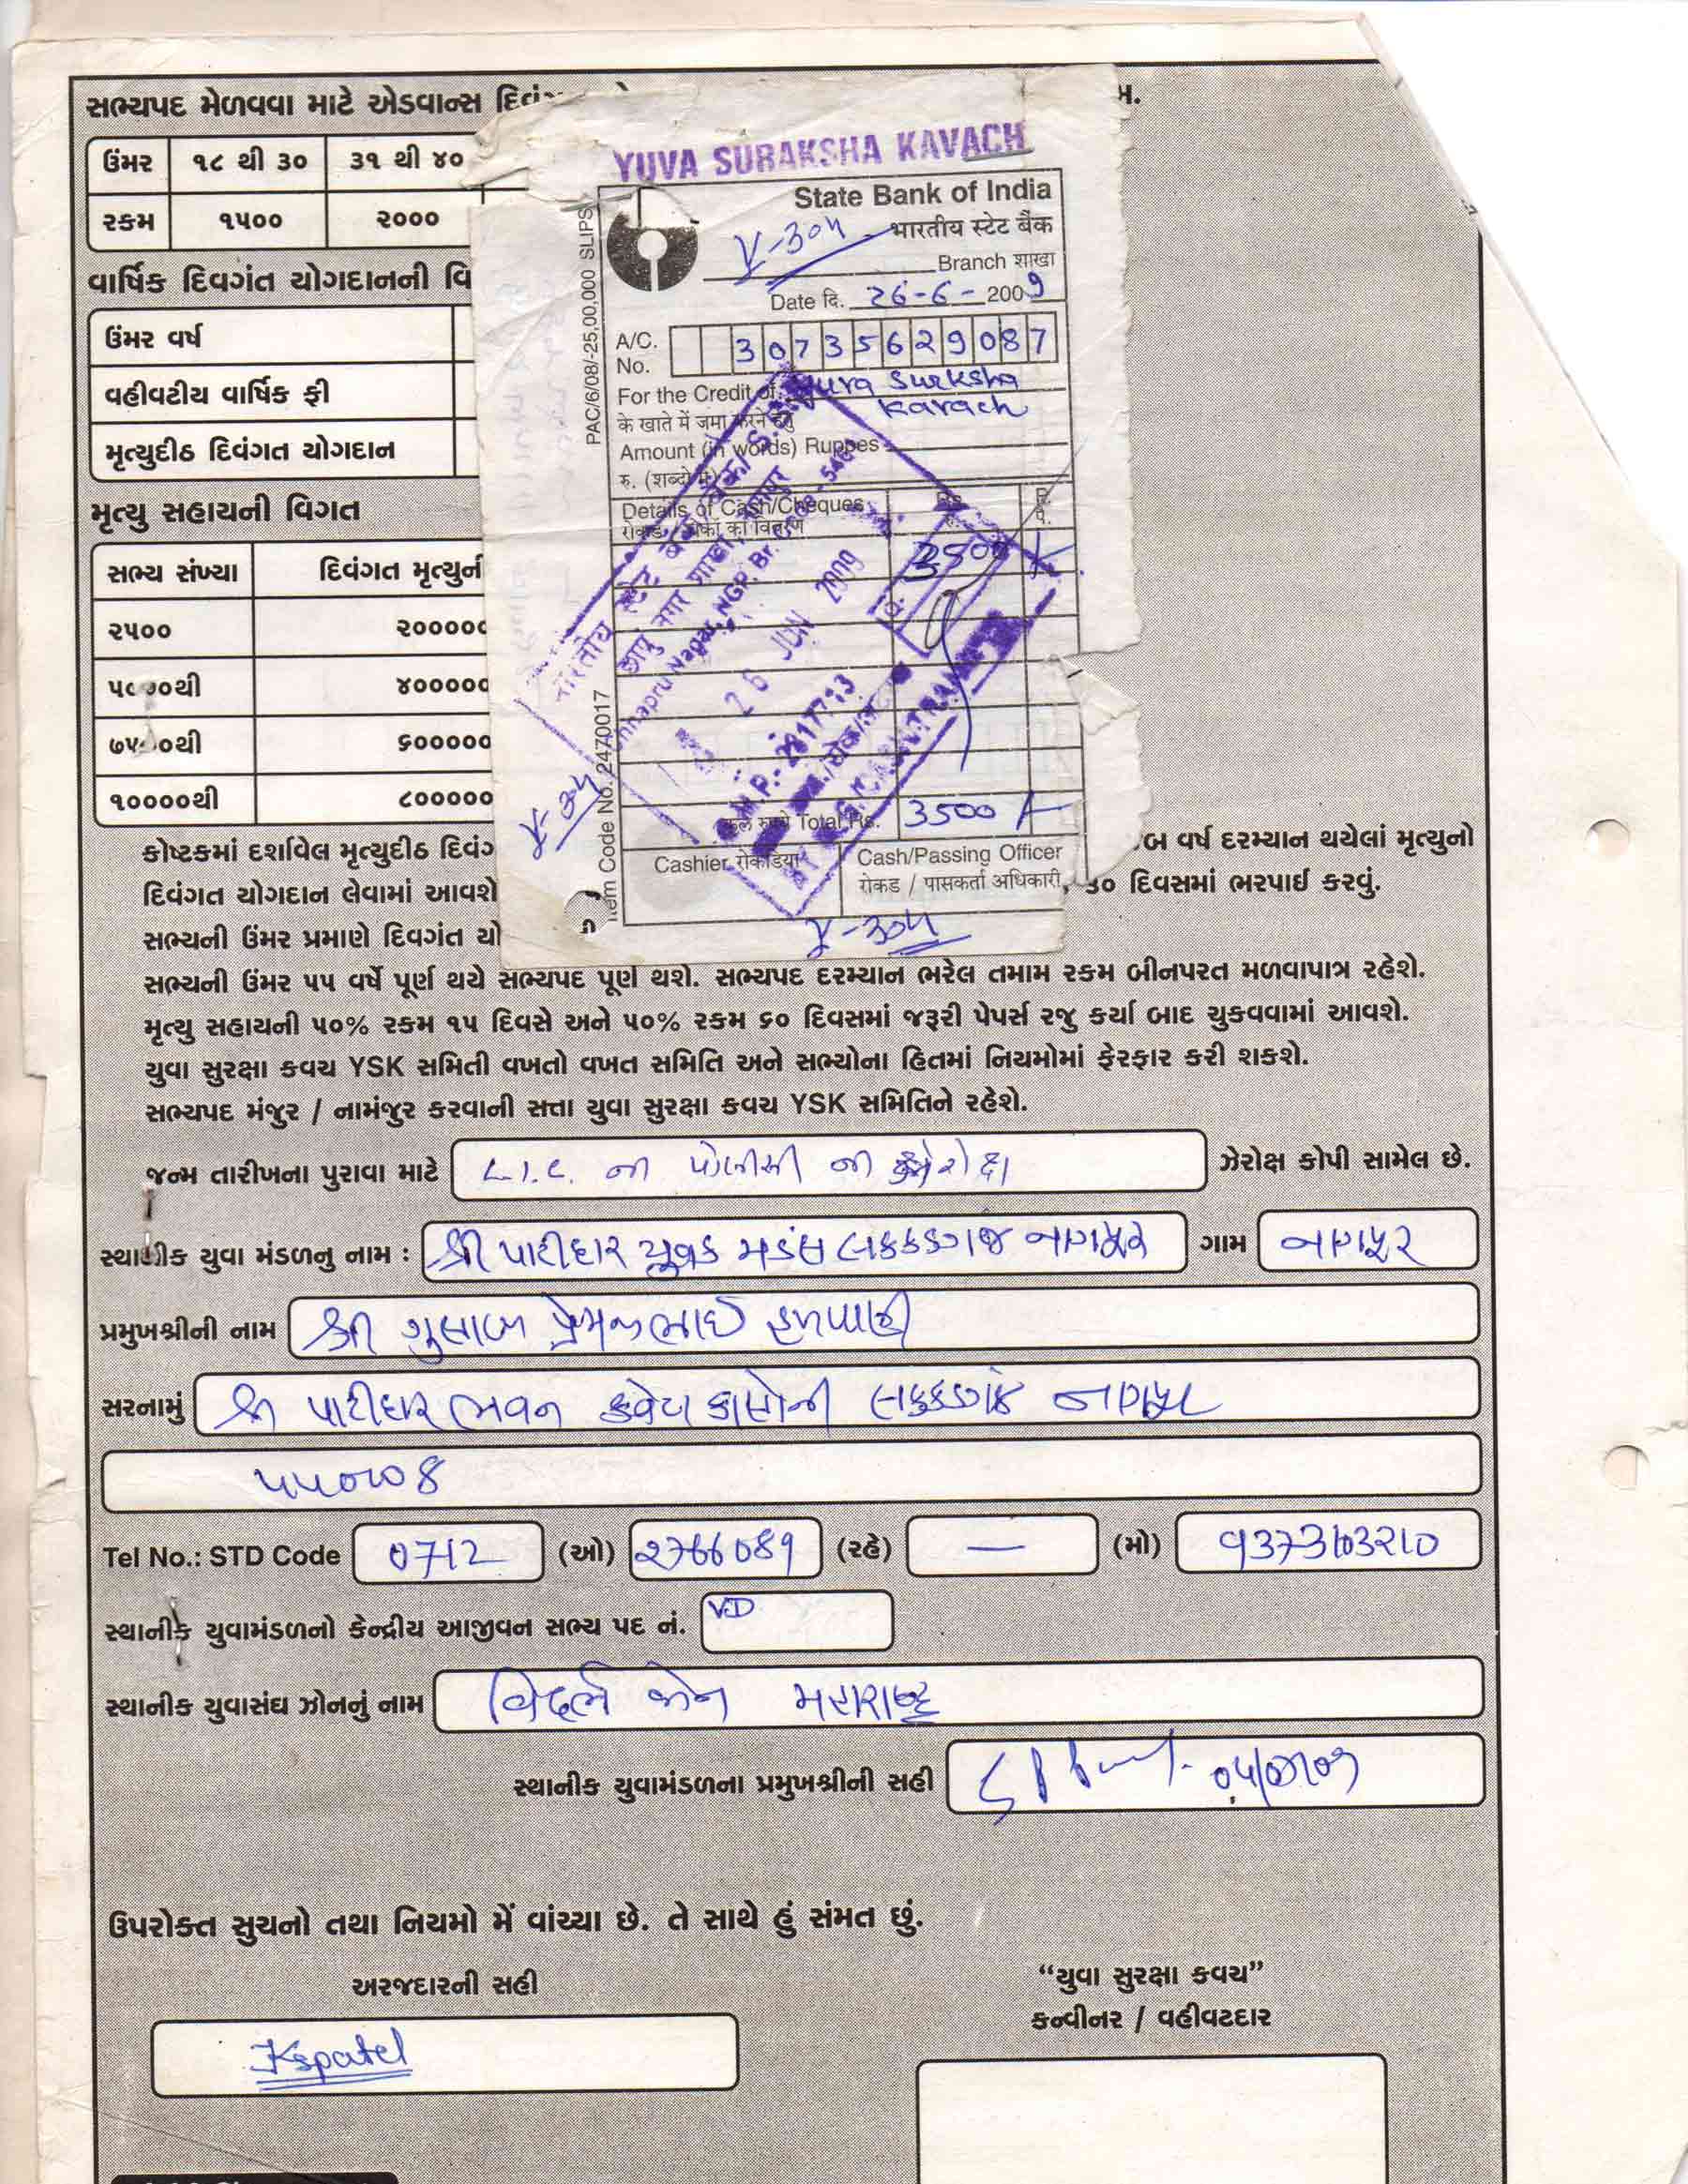 સભ્યપદ મેળવવા માટે એડવાન્સ
ઉંમર ૧૮ થી ૩૦ ૩૧ થી ૪૦
રકમ ૧૫૦૦ ૨૦૦૦
વાર્ષિક દિવગંત યોગદાનની વિ
ઉંમર વર્ષ
વહીવટીય વાર્ષિક ફી
મૃત્યુદીઠ દિવંગત યોગદાન
મૃત્યુ સહાયની વિગત
સભ્ય સંખ્યા દિવંગત મૃત્યુની
૨૫૦૦ ૨૦૦૦૦૦
૪૦૦૦૦૦
૬૦૦૦૦૦
૧૦૦૦૦થી ૮૦૦૦૦૦
YUVA SURAKSHA KAVACH
State Bank of India
V-304 भारतीय स्टेट बैंक
Branch शाखा
Date दि. 26-6-2009
A/C. No. 30735629087
For the Credit of Yuva Surksha
के खाते में जमा करने हेतु Kavach
Amount (in words) Ruppes
रु. (शब्दो में)
Details of Cash/Cheques
3500
26 JUN 2009
Total Rs. 3500
Cashier रोकडिया Cash/Passing Officer
रोकड / पासकर्ता अधिकारी
V-304
PAC/6/08/-25,00,000 SLIPS
Item Code No. 2470017
કોષ્ટકમાં દર્શાવેલ મૃત્યુદીઠ દિવંગ વર્ષ દરમ્યાન થયેલાં મૃત્યુનો
દિવંગત યોગદાન લેવામાં આવશે ૩૦ દિવસમાં ભરપાઈ કરવું.
સભ્યની ઉંમર પ્રમાણે દિવગંત યો
સભ્યની ઉંમર ૫૫ વર્ષે પૂર્ણ થયે સભ્યપદ પૂર્ણ થશે. સભ્યપદ દરમ્યાન ભરેલ તમામ રકમ બીનપરત મળવાપાત્ર રહેશે.
મૃત્યુ સહાયની ૫૦% રકમ ૧૫ દિવસે અને ૫૦% રકમ ૬૦ દિવસમાં જરૂરી પેપર્સ રજુ કર્યા બાદ ચુકવવામાં આવશે.
યુવા સુરક્ષા કવચ YSK સમિતી વખતો વખત સમિતિ અને સભ્યોના હિતમાં નિયમોમાં ફેરફાર કરી શકશે.
સભ્યપદ મંજુર / નામંજુર કરવાની સત્તા યુવા સુરક્ષા કવચ YSK સમિતિને રહેશે.
જન્મ તારીખના પુરાવા માટે L.I.C. ની પોલીસી ની ઝેરોક્ષ ઝેરોક્ષ કોપી સામેલ છે.
સ્થાનીક યુવા મંડળનુ નામ : શ્રી પાટીદાર યુવક મડંલ લકકડગંજ નાગપુર ગામ નાગપુર
પ્રમુખશ્રીની નામ શ્રી ગુલાબ પ્રેમજીભાઈ
સરનામું શ્રી પાટીદાર ભવન કવેટા કાલોની લકકડગંજ નાગપુર
Tel No.: STD Code 0712 (ઓ) 2766089 (રહે) — (મો) 9373103210
સ્થાનીક યુવામંડળનો કેન્દ્રીય આજીવન સભ્ય પદ નં. VD
સ્થાનીક યુવાસંઘ ઝોનનું નામ વિદર્ભ ઝોન મહારાષ્ટ્ર
સ્થાનીક યુવામંડળના પ્રમુખશ્રીની સહી
ઉપરોક્ત સુચનો તથા નિયમો મેં વાંચ્યા છે. તે સાથે હું સંમત છું.
અરજદારની સહી
“યુવા સુરક્ષા કવચ”
કન્વીનર / વહીવટદાર
Kspatel